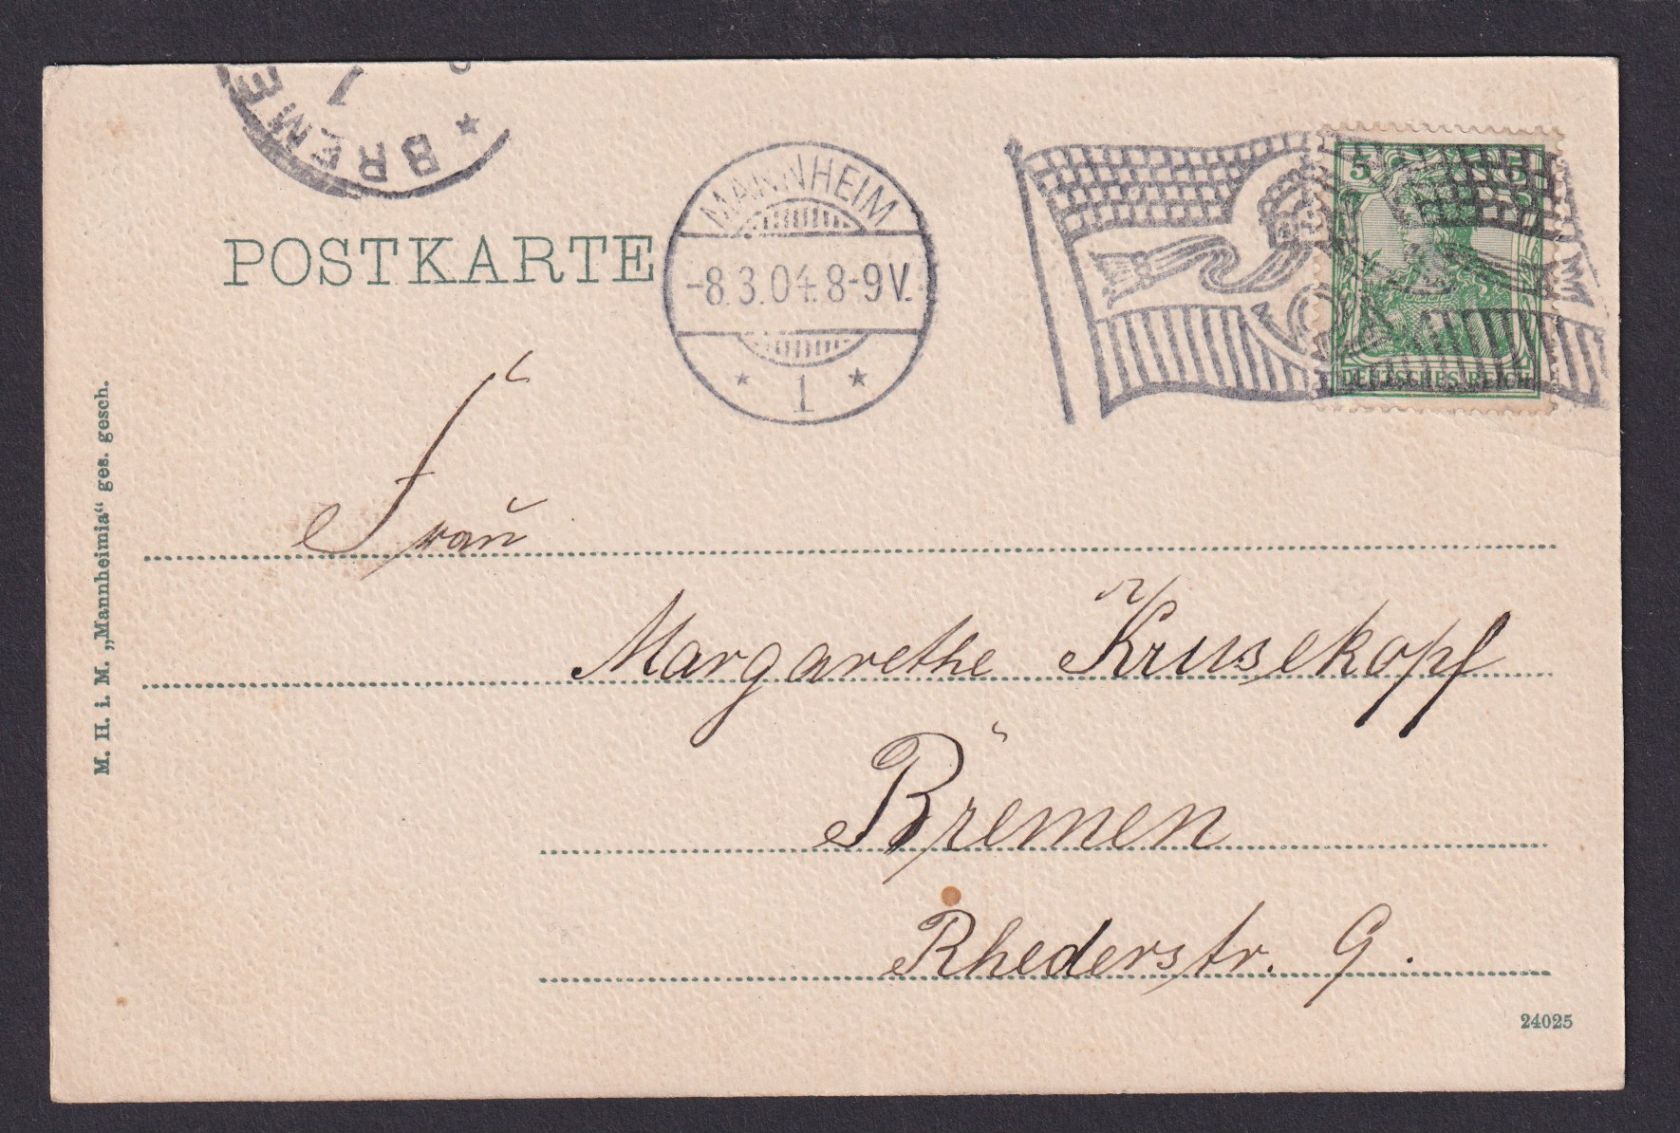 BREME
1
MANNHEIM
-8.3.04.8-9V.
* 1 *
5 5
DEUTSCHES REICH
POSTKARTE
M. H. i. M. „Mannheimia“ ges. gesch.
Frau
Margarethe Krusekopf
Bremen
Rhederstr. 9.
24025